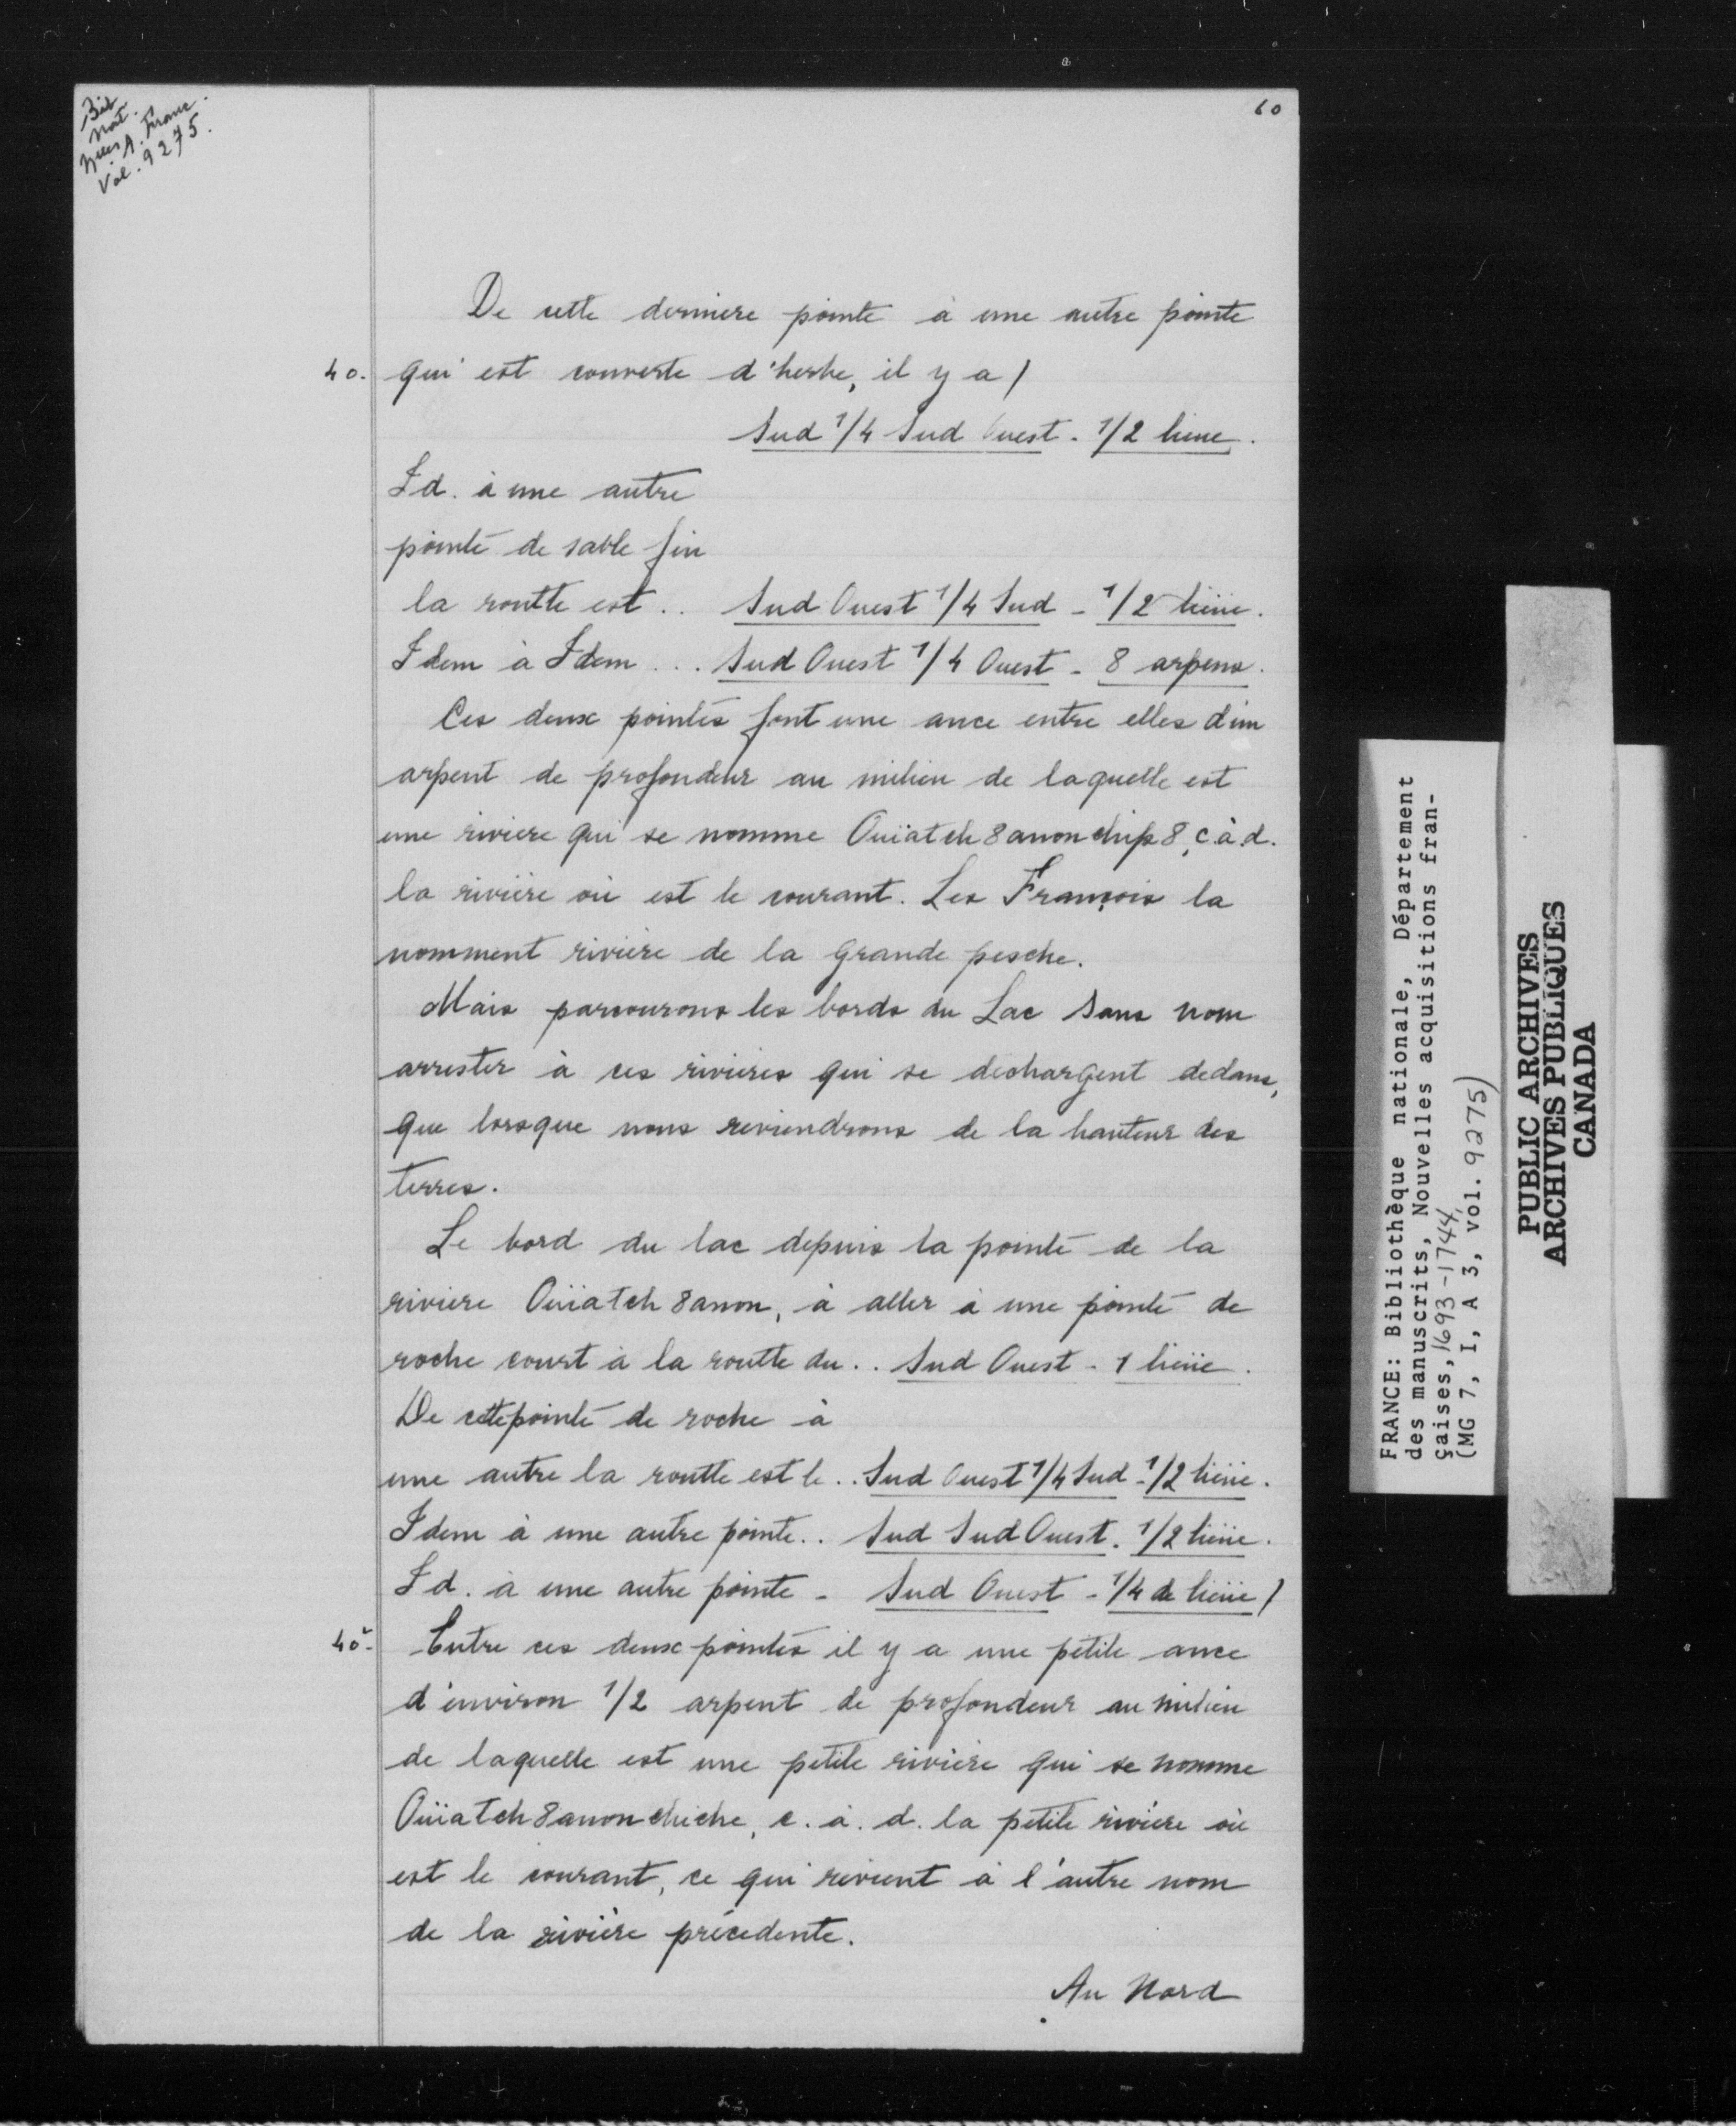 Bib
Nat.
Nlles A. Franc.
Vol. 9275.
60
De cette derniere pointe à une autre pointe
40. qui est couverte d'herbe, il y a /
Sud 1/4 Sud Ouest - 1/2 lieue.
Id. à une autre
pointe de sable fin
la routte est .. Sud Ouest 1/4 Sud - 1/2 lieüe.
Idem à Idem ... Sud Ouest 1/4 Ouest - 8 arpens.
Ces deux pointes font une ance entre elles d'un
arpent de profondeur au milieu de laquelle est
une riviere qui se nomme Ouiatch8anonchip8, c.à.d.
la rivière où est le courant. Les François la
nomment rivière de la grande pesche.
Mais parcourons les bords du Lac sans nous
arrester à ces rivieres qui se dechargent dedans,
que lorsque nous reviendrons de la hauteur des
terres.
Le bord du lac depuis la pointe de la
riviere Ouiatch8anon, à aller à une pointe de
roche court à la routte du .. Sud Ouest - 1 lieüe.
De cette pointe de roche à
une autre la routte est le .. Sud Ouest 1/4 Sud - 1/2 lieüe.
Idem à une autre pointe .. Sud Sud Ouest. 1/2 lieüe.
Id. à une autre pointe - Sud Ouest - 1/4 de lieüe /
40v- Entre ces deux pointes il y a une petite ance
d'environ 1/2 arpent de profondeur au milieu
de laquelle est une petite rivière qui se nomme
Ouiatch8anonchiche, c. à. d. la petite rivière où
est le courant, ce qui revient à l'autre nom
de la rivière précedente.
Au Nord
FRANCE: Bibliothèque nationale, Département
des manuscrits, Nouvelles acquisitions fran-
çaises, 1693-1744,
(MG 7, I, A 3, vol. 9275)
PUBLIC ARCHIVES
ARCHIVES PUBLIQUES
CANADA